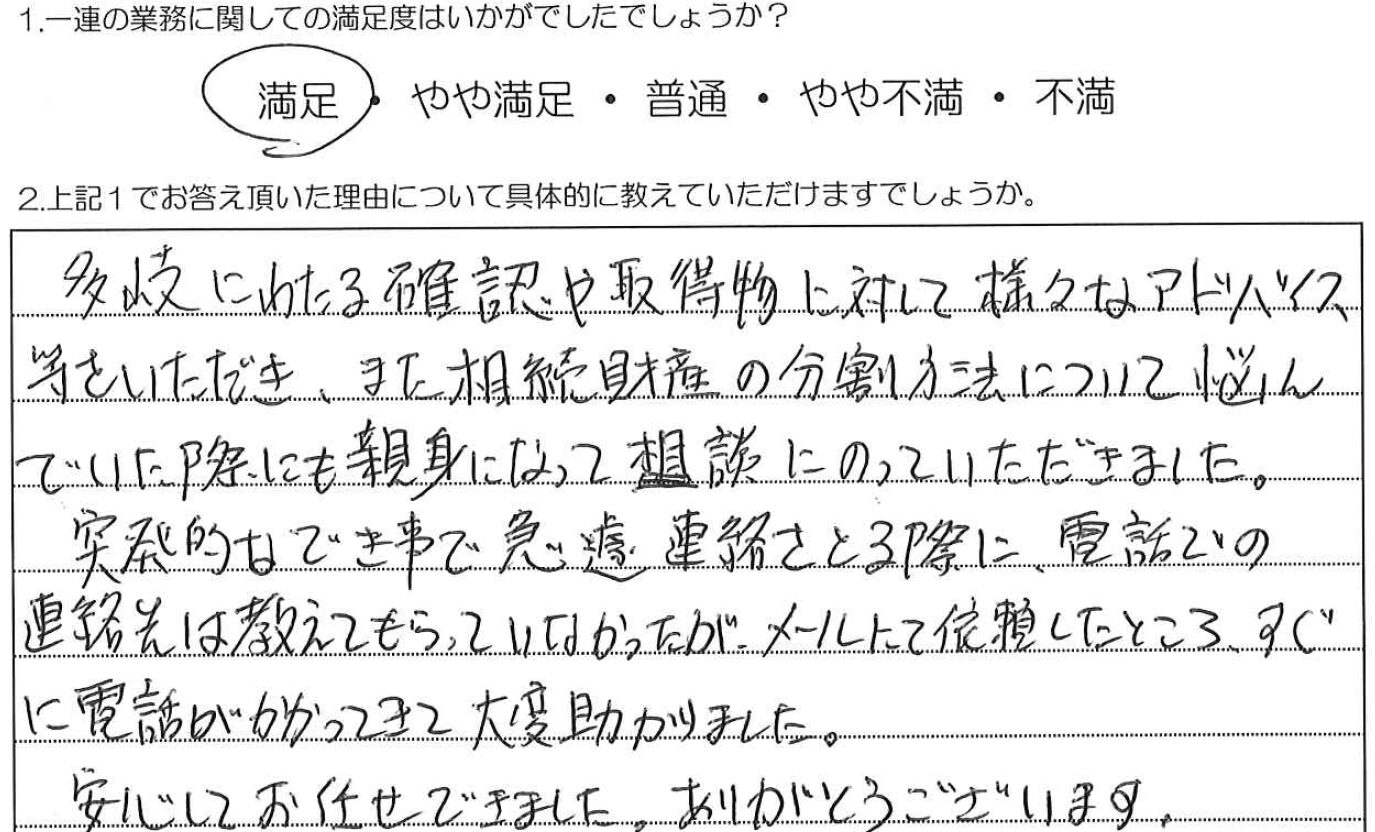 1.一連の業務に関しての満足度はいかがでしたでしょうか？
満足・やや満足・普通・やや不満・不満
2.上記1でお答え頂いた理由について具体的に教えていただけますでしょうか。
多岐にわたる確認や取得物に対して様々なアドバイス
等をいただき、また相続財産の分割方法について悩ん
でいた際にも親身になって相談にのっていただきました。
突発的なでき事で急遽連絡をとる際に、電話での
連絡先は教えてもらっていなかったが、メールにて依頼したところ、すぐ
に電話がかかってきて大変助かりました。
安心してお任せできました。ありがとうございます。